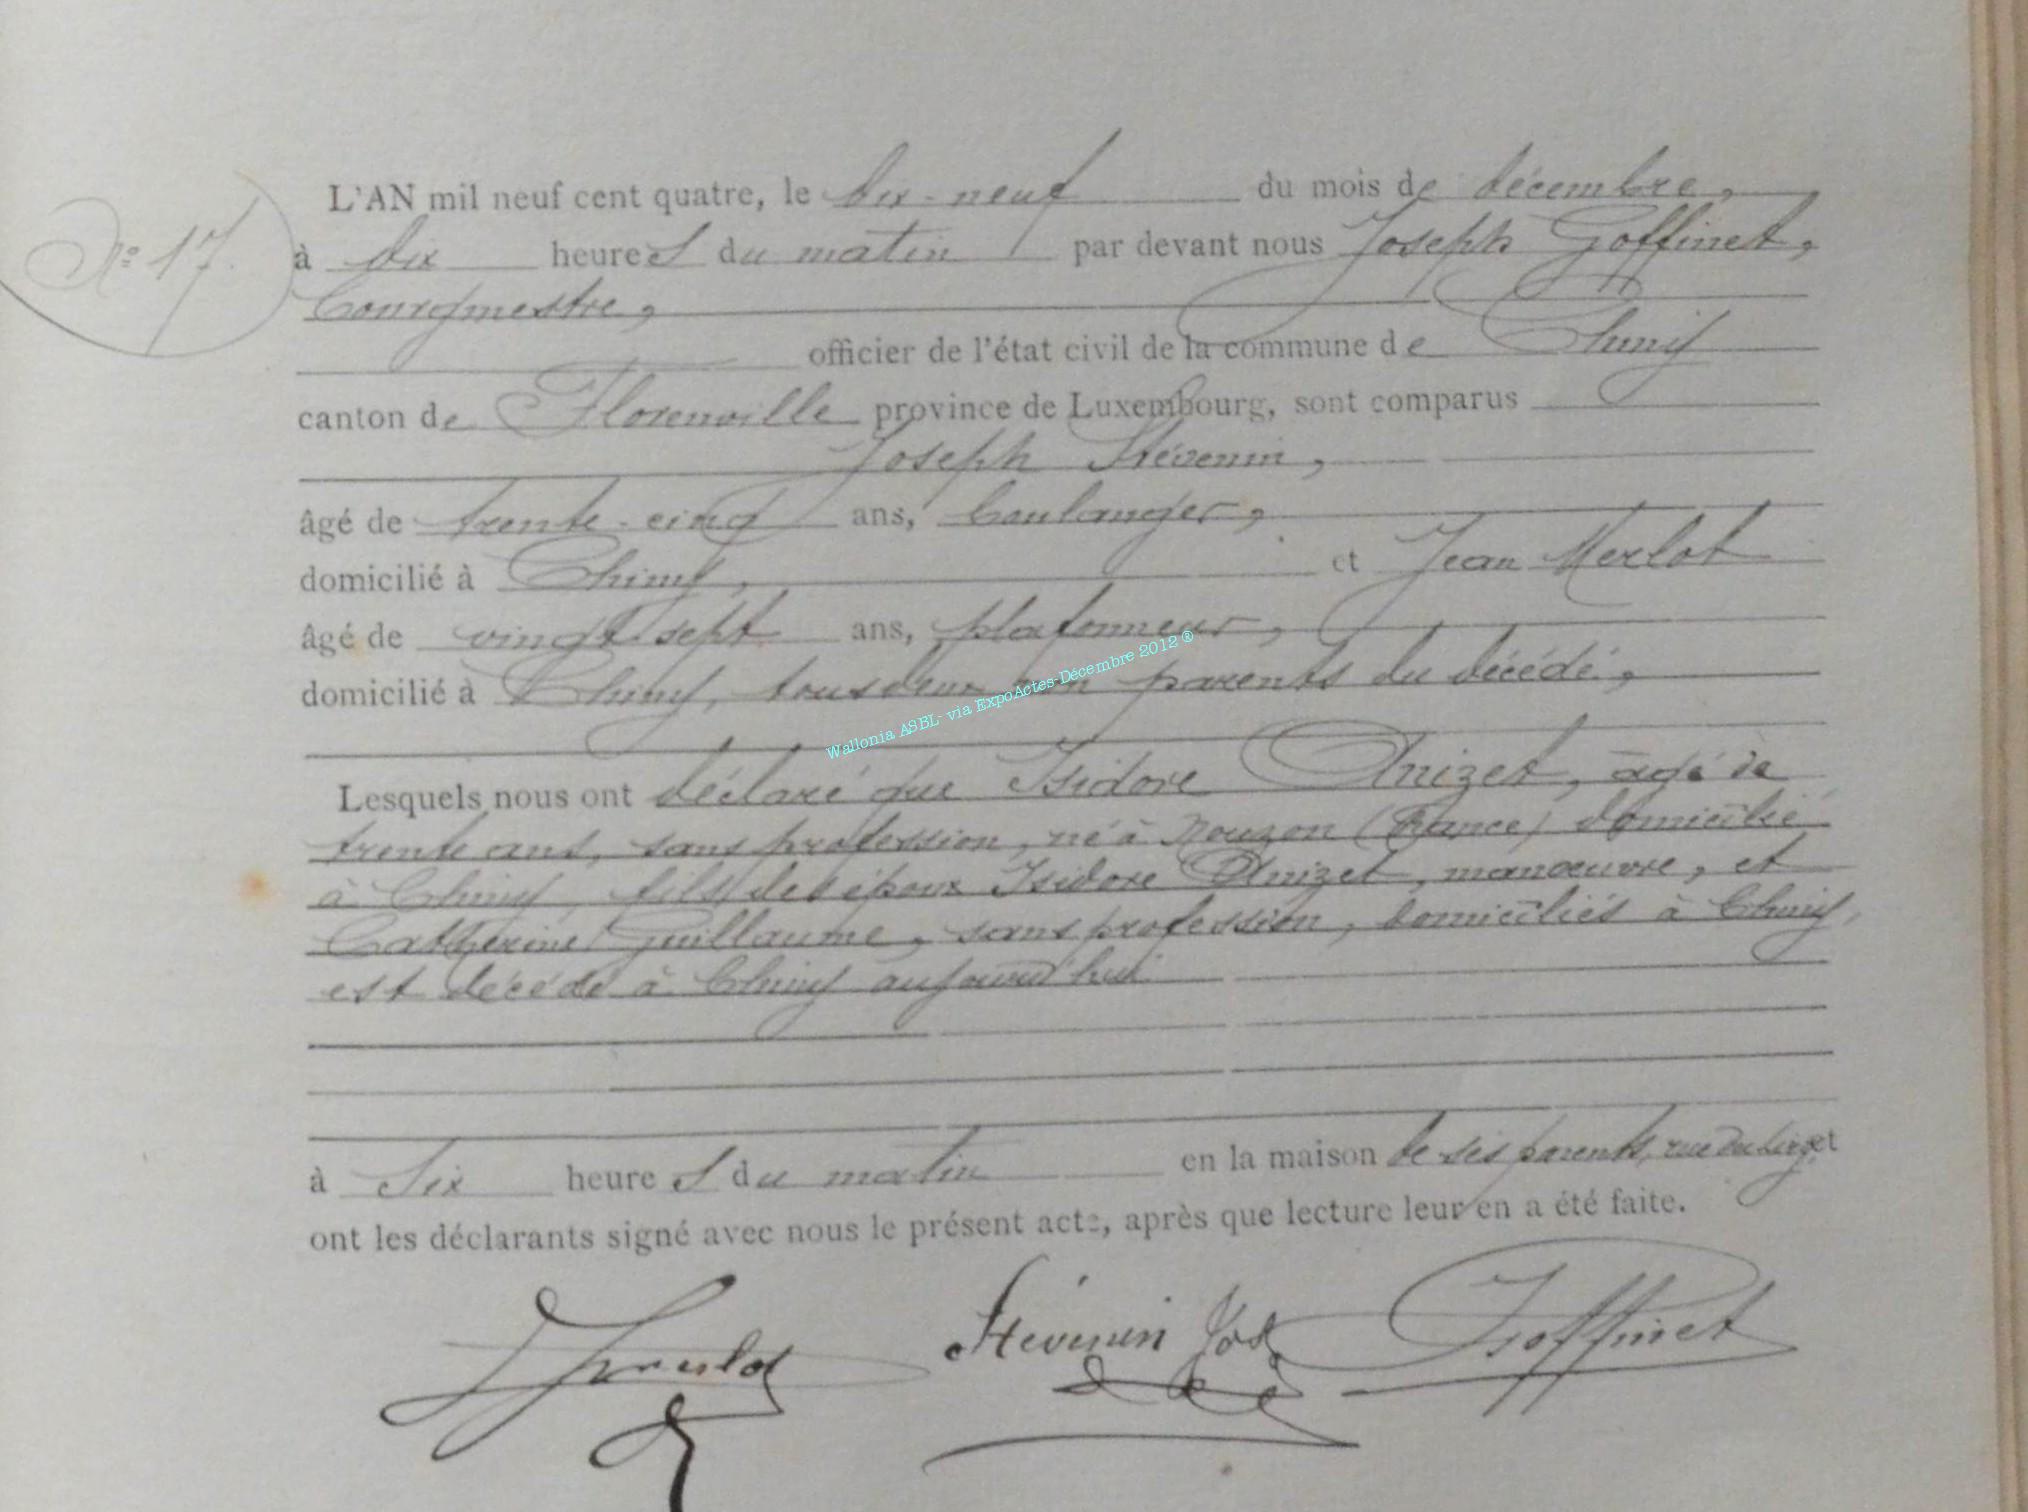 L'AN mil neuf cent quatre, le dix-neuf du mois de décembre,
N° 17.
à dix heures du matin par devant nous Joseph Goffinet,
bourgmestre,
officier de l'état civil de la commune de Chiny
canton de Florenville province de Luxembourg, sont comparus
Joseph Stévenin,
âgé de trente-cinq ans, boulanger,
domicilié à Chiny, et Jean Merlot
âgé de vingt-sept ans, plafonneur,
domicilié à Chiny, tous deux non parents du décédé,
Wallonia ASBL- via ExpoActes-Décembre 2012 ®
Lesquels nous ont déclaré que Isidore Anizet, âgé de
trente ans, sans profession, né à Nouzon (France) domicilié
à Chiny, fils des époux Isidore Anizet, manœuvre, et
Catherine Guillaume, sans profession, domiciliés à Chiny,
est décédé à Chiny aujourd'hui
à six heures du matin en la maison de ses parents, rue du et
ont les déclarants signé avec nous le présent acte, après que lecture leur en a été faite.
Stévenin Jos Goffinet